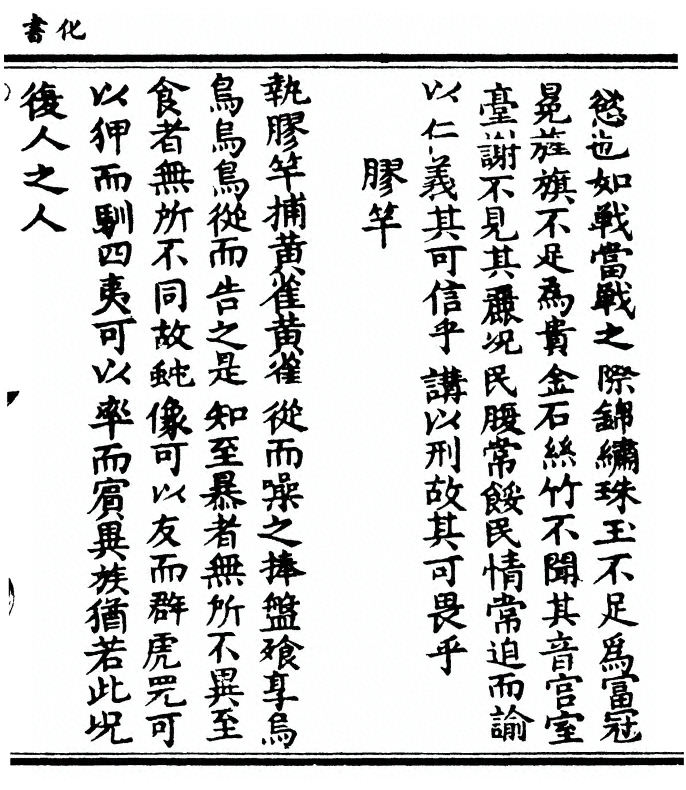 化書
慾也如戰當戰之際錦繡珠玉不足爲富冠
冕旌旗不足為貴金石絲竹不聞其音宮室
臺謝不見其麗况民腹常餒民情常迫而諭
以仁義其可信乎講以刑故其可畏乎
膠竿
執膠竿捕黃雀黃雀從而噪之捧盤飱享烏
烏烏烏從而告之是知至暴者無所不異至
食者無所不同故像可以友而群虎兕可
以狎而馴四夷可以率而賓異族猶若此况
復人之人